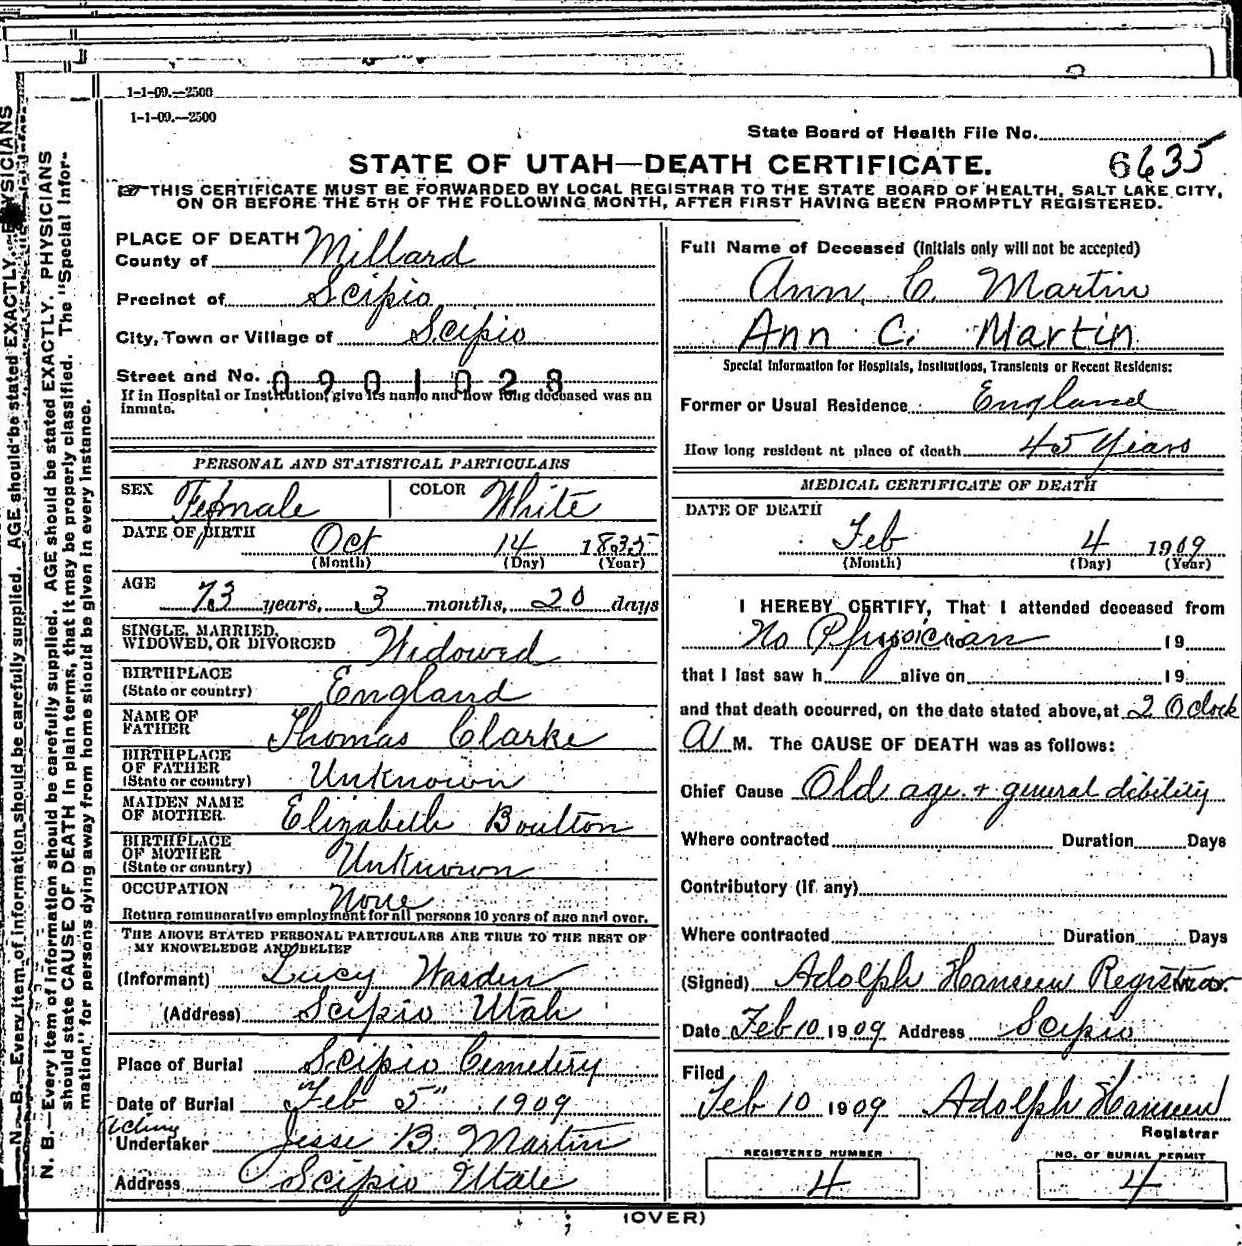 1-1-09.—2500
1-1-09.—2500
State Board of Health File No.
STATE OF UTAH—DEATH CERTIFICATE. 6635
THIS CERTIFICATE MUST BE FORWARDED BY LOCAL REGISTRAR TO THE STATE BOARD OF HEALTH, SALT LAKE CITY,
ON OR BEFORE THE 5TH OF THE FOLLOWING MONTH, AFTER FIRST HAVING BEEN PROMPTLY REGISTERED.
PLACE OF DEATH
County of Millard
Precinct of Scipio
City, Town or Village of Scipio
Street and No. 0901028
If in Hospital or Institution, give its name and how long deceased was an
inmate.
PERSONAL AND STATISTICAL PARTICULARS
SEX Female COLOR White
DATE OF BIRTH Oct 14 1835
(Month) (Day) (Year)
AGE 73 years, 3 months, 20 days
SINGLE, MARRIED,
WIDOWED, OR DIVORCED Widowed
BIRTHPLACE
(State or country) England
NAME OF
FATHER Thomas Clarke
BIRTHPLACE
OF FATHER
(State or country) Unknown
MAIDEN NAME
OF MOTHER Elizabeth Boulton
BIRTHPLACE
OF MOTHER
(State or country) Unknown
OCCUPATION None
Return remunerative employment for all persons 10 years of age and over.
THE ABOVE STATED PERSONAL PARTICULARS ARE TRUE TO THE BEST OF
MY KNOWELEDGE AND BELIEF
(Informant) Lucy Wasden
(Address) Scipio Utah
Place of Burial Scipio Cemetery
Date of Burial Feb 5" 1909
Acting
Undertaker Jesse B. Martin
Address Scipio Utah
Full Name of Deceased (initials only will not be accepted)
Ann C. Martin
Ann C. Martin
Special Information for Hospitals, Institutions, Transients or Recent Residents:
Former or Usual Residence England
How long resident at place of death 45 Years
MEDICAL CERTIFICATE OF DEATH
DATE OF DEATH
Feb 4 1909
(Month) (Day) (Year)
I HEREBY CERTIFY, That I attended deceased from
No Physician 19
that I last saw h alive on 19
and that death occurred, on the date stated above, at 2 Oclock
A M. The CAUSE OF DEATH was as follows:
Chief Cause Old age + general dibility
Where contracted Duration Days
Contributory (if any)
Where contracted Duration Days
(Signed) Adolph Hansen Registrar
Date Feb 10 1909 Address Scipio
Filed
Feb 10 1909 Adolph Hansen
Registrar
REGISTERED NUMBER
4
NO. OF BURIAL PERMIT
4
(OVER)
N. B.—Every item of information should be carefully supplied. AGE should be stated EXACTLY. PHYSICIANS
should state CAUSE OF DEATH in plain terms, that it may be properly classified. The "Special Infor-
mation" for persons dying away from home should be given in every instance.
N. B.—Every item of information should be carefully supplied. AGE should be stated EXACTLY. PHYSICIANS